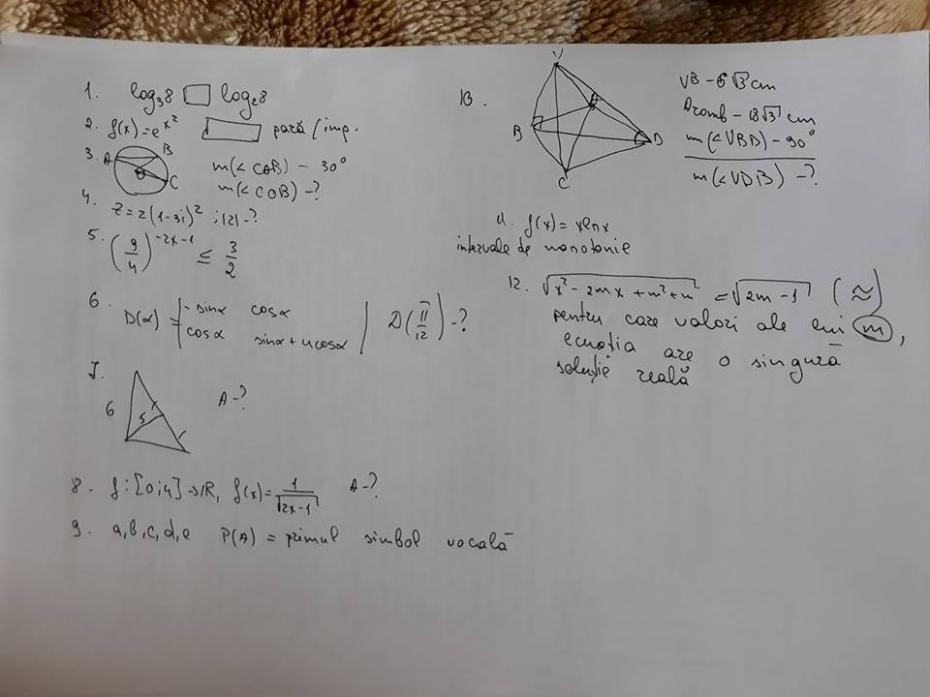 1. log₃8 □ log₂8
2. f(x)=e^x² □ pară / imp.
3. A B C O m(<CAB) - 30°
m(<COB) -?
4. z=2(1-3i)² ; |z| -?
5. (9/4)^-2x-1 ≤ 3/2
6. D(α) = | -sinα cosα
cosα sinα+4cosα | D(π/12) -?
7. 6 5 A-?
8. f:[0;4]->R, f(x)=1/√2x-1 A-?
9. a,b,c,d,e P(A) = primul simbol vocală
10. V B C D VB - 6√3 cm
Aromb - 18√3 cm
m(<VBD) - 90°
m(<VDB) -?
11. f(x)= xlnx
intervale de monotonie
12. √x²-2mx+m²+m = √2m-1 (≈)
pentru care valori ale lui m,
ecuația are o singură
soluție reală